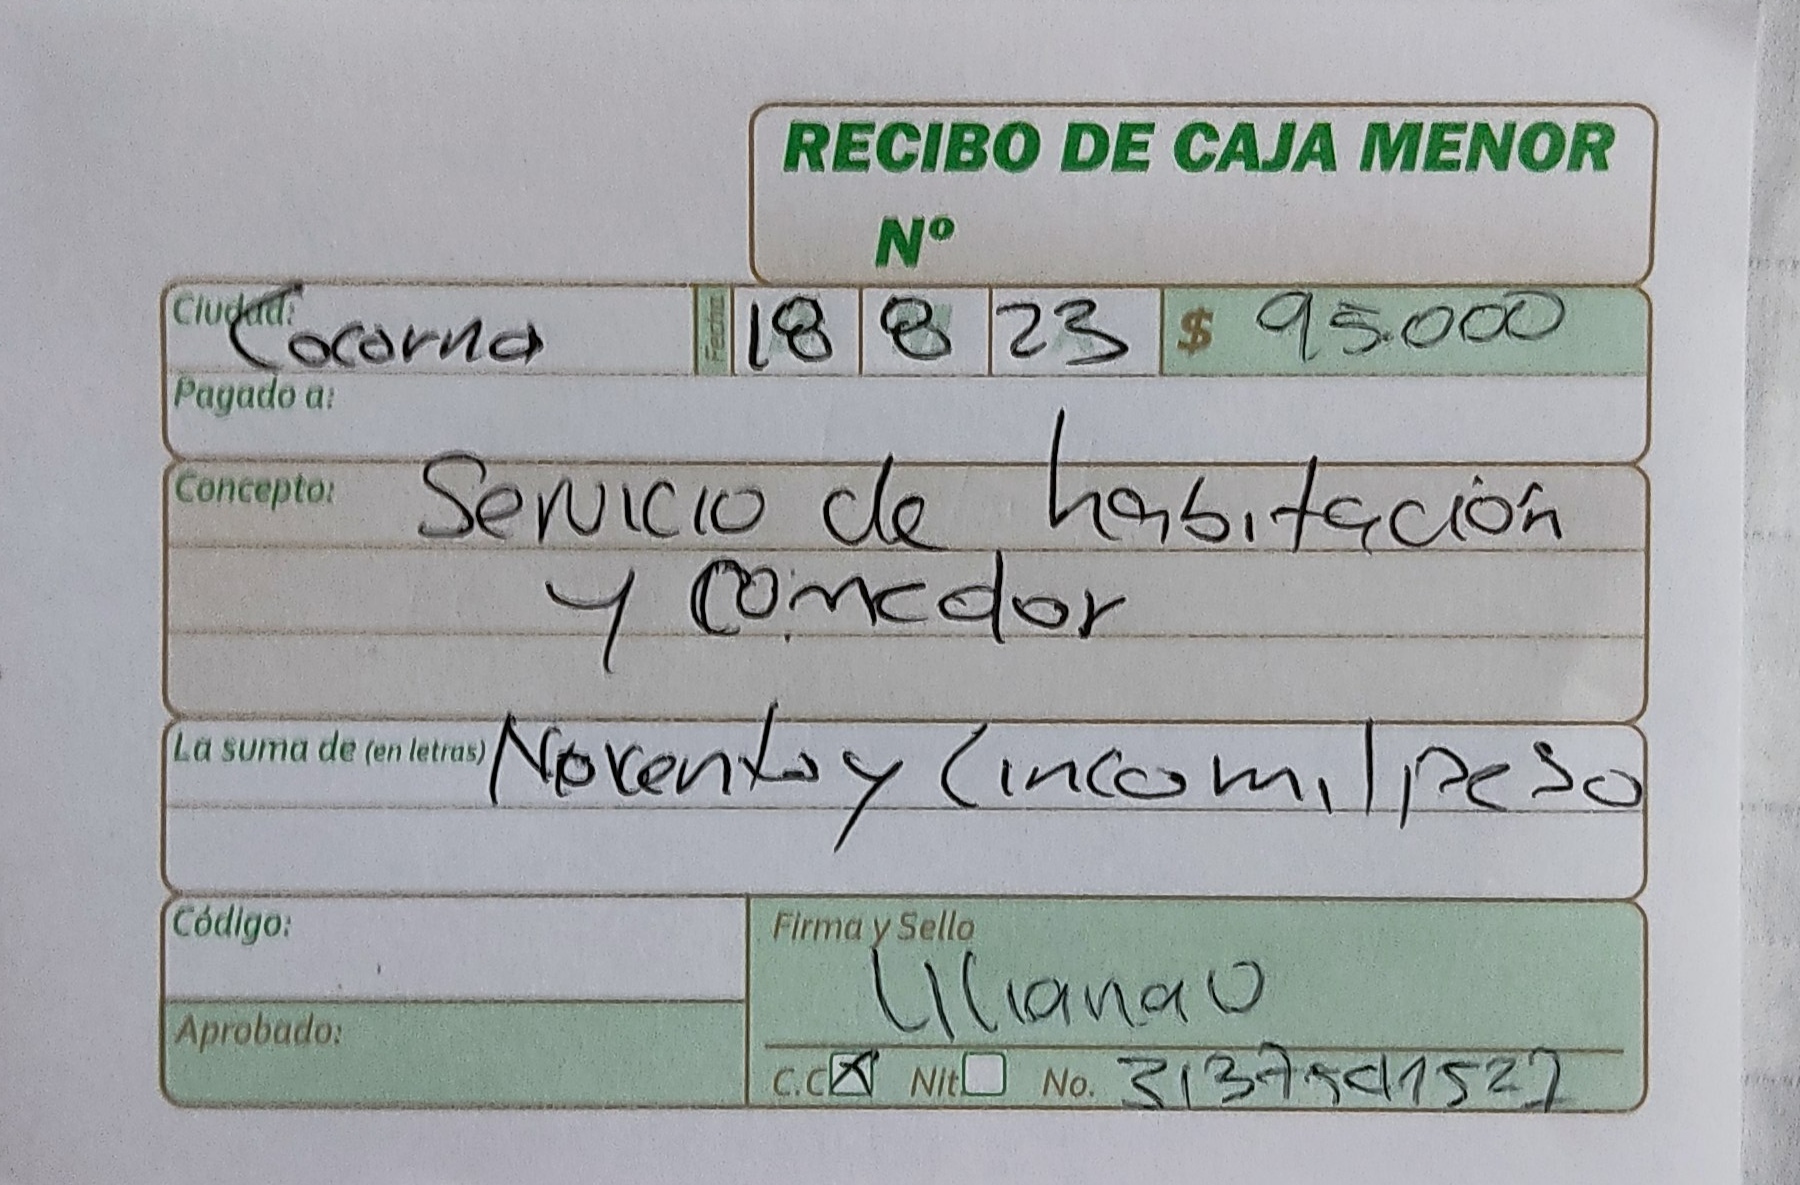 RECIBO DE CAJA MENOR
Nº
Ciudad: Cocorna Fecha 18 8 23 $ 95.000
Pagado a:
Concepto: Servicio de habitación
y comedor
La suma de (en letras) Noventa y Cinco mil peso
Código:
Firma y Sello
Liliana O
Aprobado:
C.C Nit No.